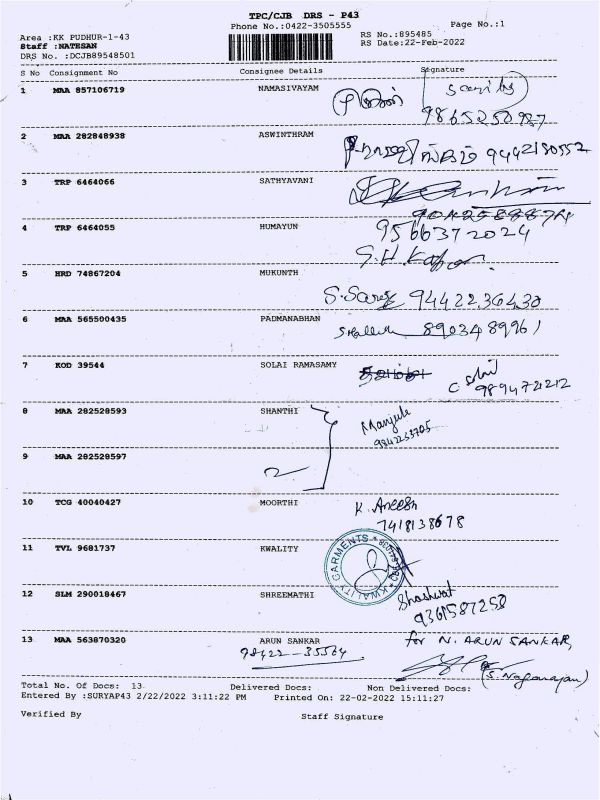 TPC/CJB DRS - P43
Phone No.:0422-3505555 Page No.:1
Area :KK PUDHUR-1-43 RS No.:895485
Staff :NATESAN RS Date:22-Feb-2022
DRS No. :DCJB89548501
S No Consignment No Consignee Details Signature
1 MAA 857106719 NAMASIVAYAM
2 MAA 282848938 ASWINTHRAM 9442180552
3 TRP 6464066 SATHYAVANI
4 TRP 6464055 HUMAYUN 9566372024
5 HRD 74867204 MUKUNTH
9442236430
6 MAA 565500435 PADMANABHAN 8903489961
7 KOD 39544 SOLAI RAMASAMY
8 MAA 282528593 SHANTHI Manjula
9 MAA 282528597
10 TCG 40040427 MOORTHI K. Aneesh
7418138678
11 TVL 9681737 KWALITY KWALITY GARMENTS
12 SLM 290018467 SHREEMATHI Shashwat
9361587258
13 MAA 563870320 ARUN SANKAR for N. ARUN SANKAR,
98422-35564
Total No. Of Docs: 13 Delivered Docs: Non Delivered Docs:
Entered By :SURYAP43 2/22/2022 3:11:22 PM Printed On: 22-02-2022 15:11:27
Verified By Staff Signature